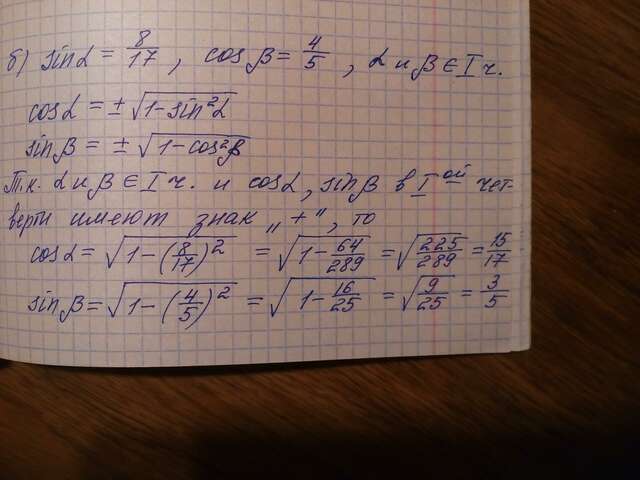 б) sinα = 8/17, cosβ = 4/5, α и β ∈ I ч.
cosα = ±√(1-sin²α)
sinβ = ±√(1-cos²β)
Т.к. α и β ∈ I ч. и cosα, sinβ в I ой чет-
верти имеют знак „+“, то
cosα = √(1-(8/17)²) = √(1-64/289) = √(225/289) = 15/17
sinβ = √(1-(4/5)²) = √(1-16/25) = √(9/25) = 3/5